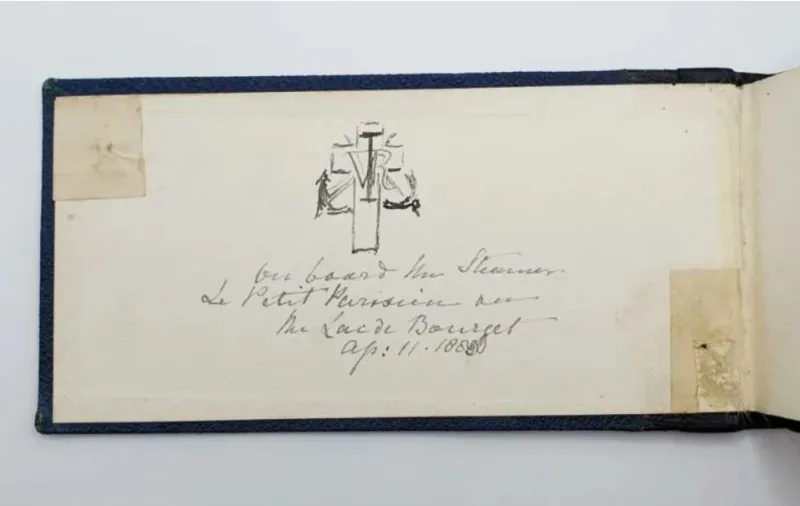 VRI
On board the Steamer
Le Petit Parisien on
the Lac de Bourget
Ap: 11. 188